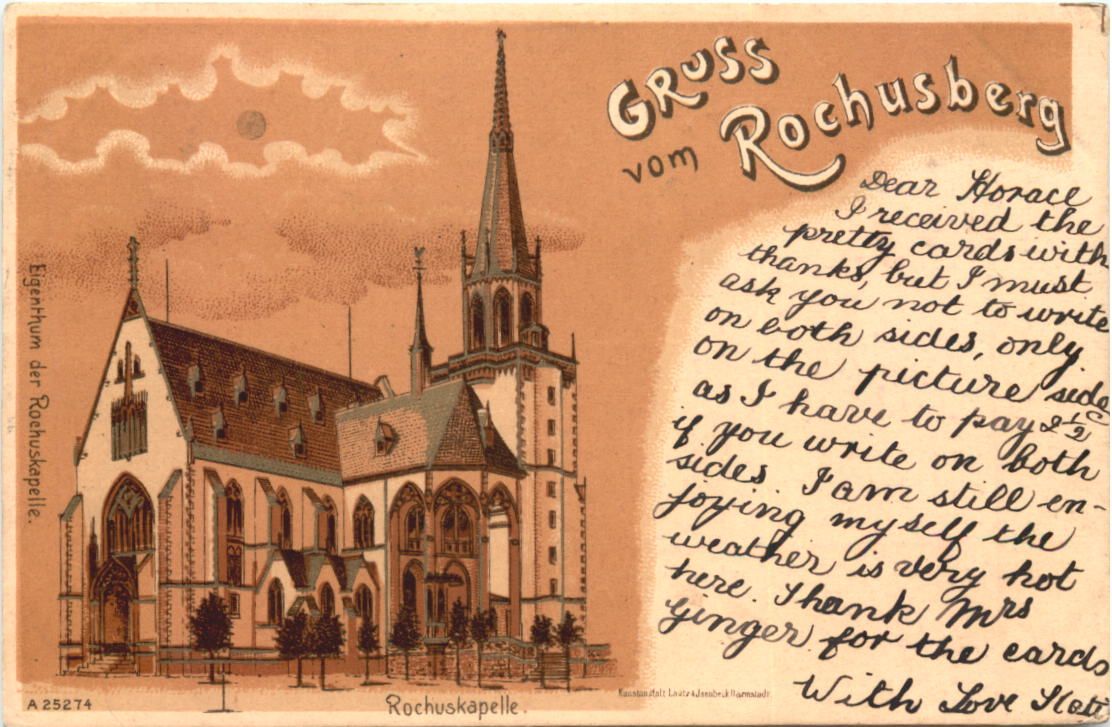 Gruss
vom Rochusberg
Dear Horace
I received the
pretty cards with
thanks, but I must
ask you not to write
on both sides, only
on the picture side
as I have to pay 2 1/2 c
if you write on both
sides. I am still en-
joying myself the
weather is very hot
here. Thank Mrs
Ginger for the cards
With Love Kate
Eigenthum der Rochuskapelle.
A 25274
Rochuskapelle.
Kunstanstalt Lautz & Isenbeck Darmstadt.